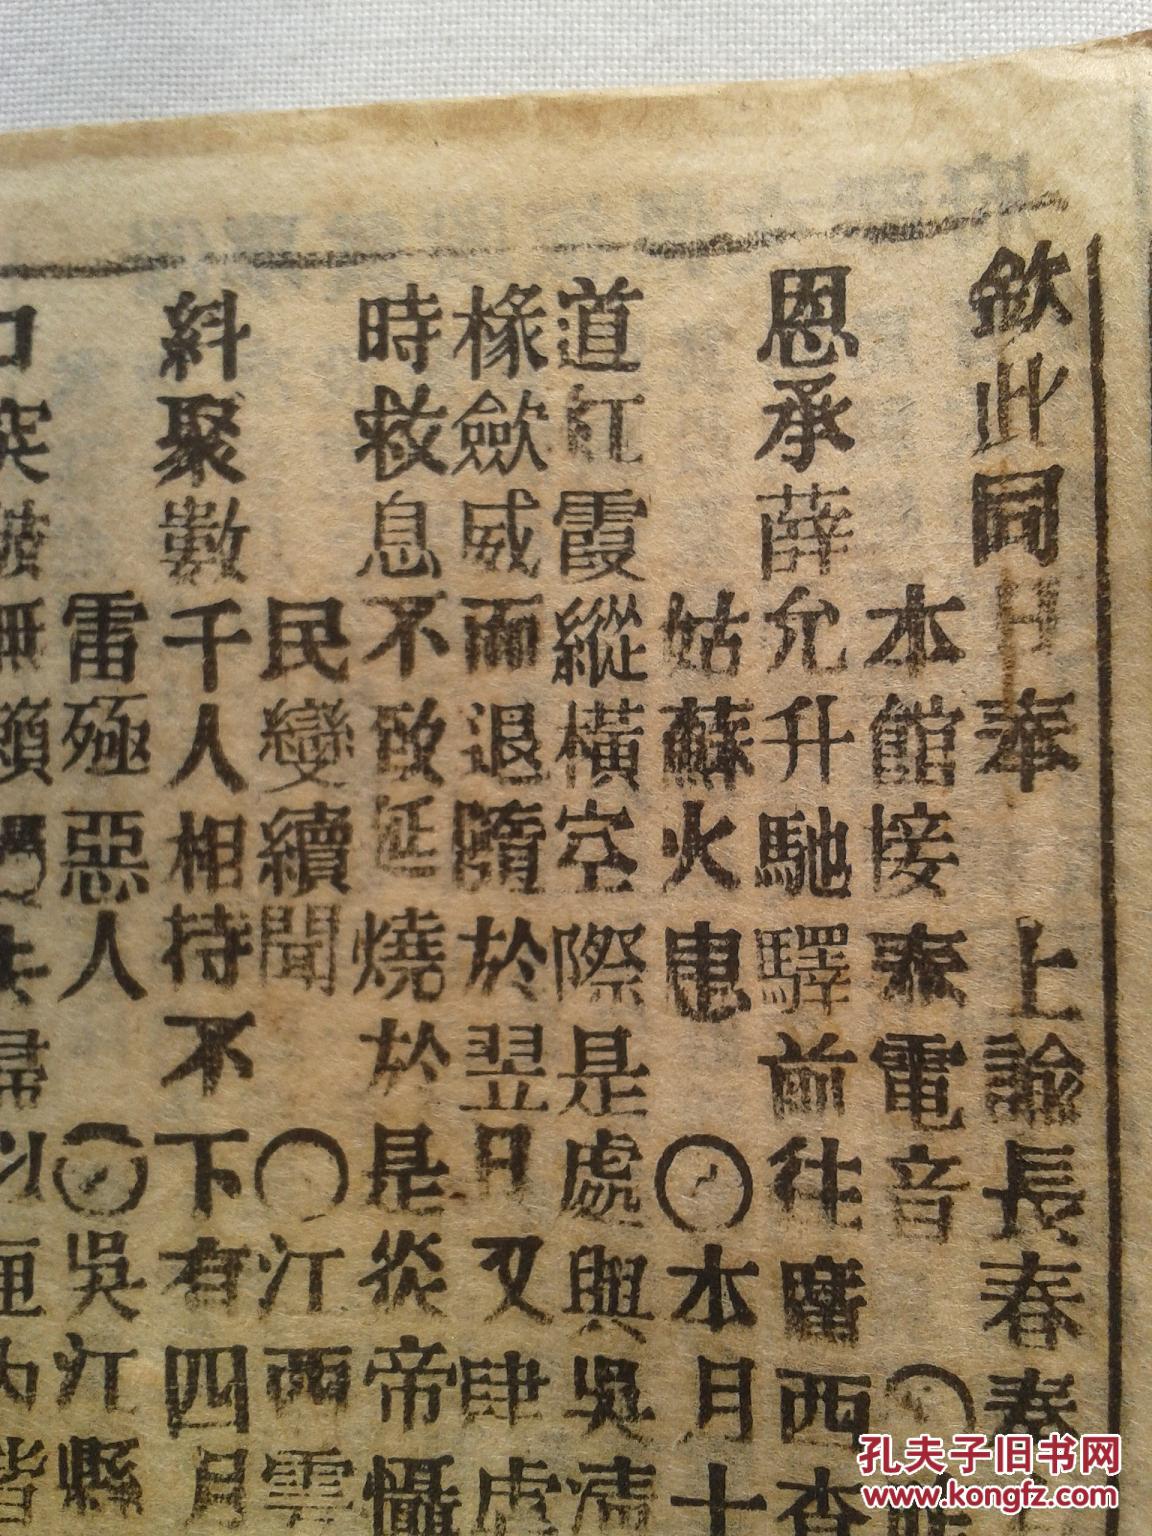 欽此同日奉 上諭長春
本館接奉電音
恩承薛允升馳驛前往陝西查
姑蘇火患 ○本月十
道紅霞縱橫空際是處與吳
椽歛威而退隨於翌日又肆虐
時救息不致延燒於是炎帝懾
民變續聞 ○江西雲
糾聚數千人相持不下有四月
雷殛惡人 ○吳江縣
口突
孔夫子旧书网
www.kongfz.com